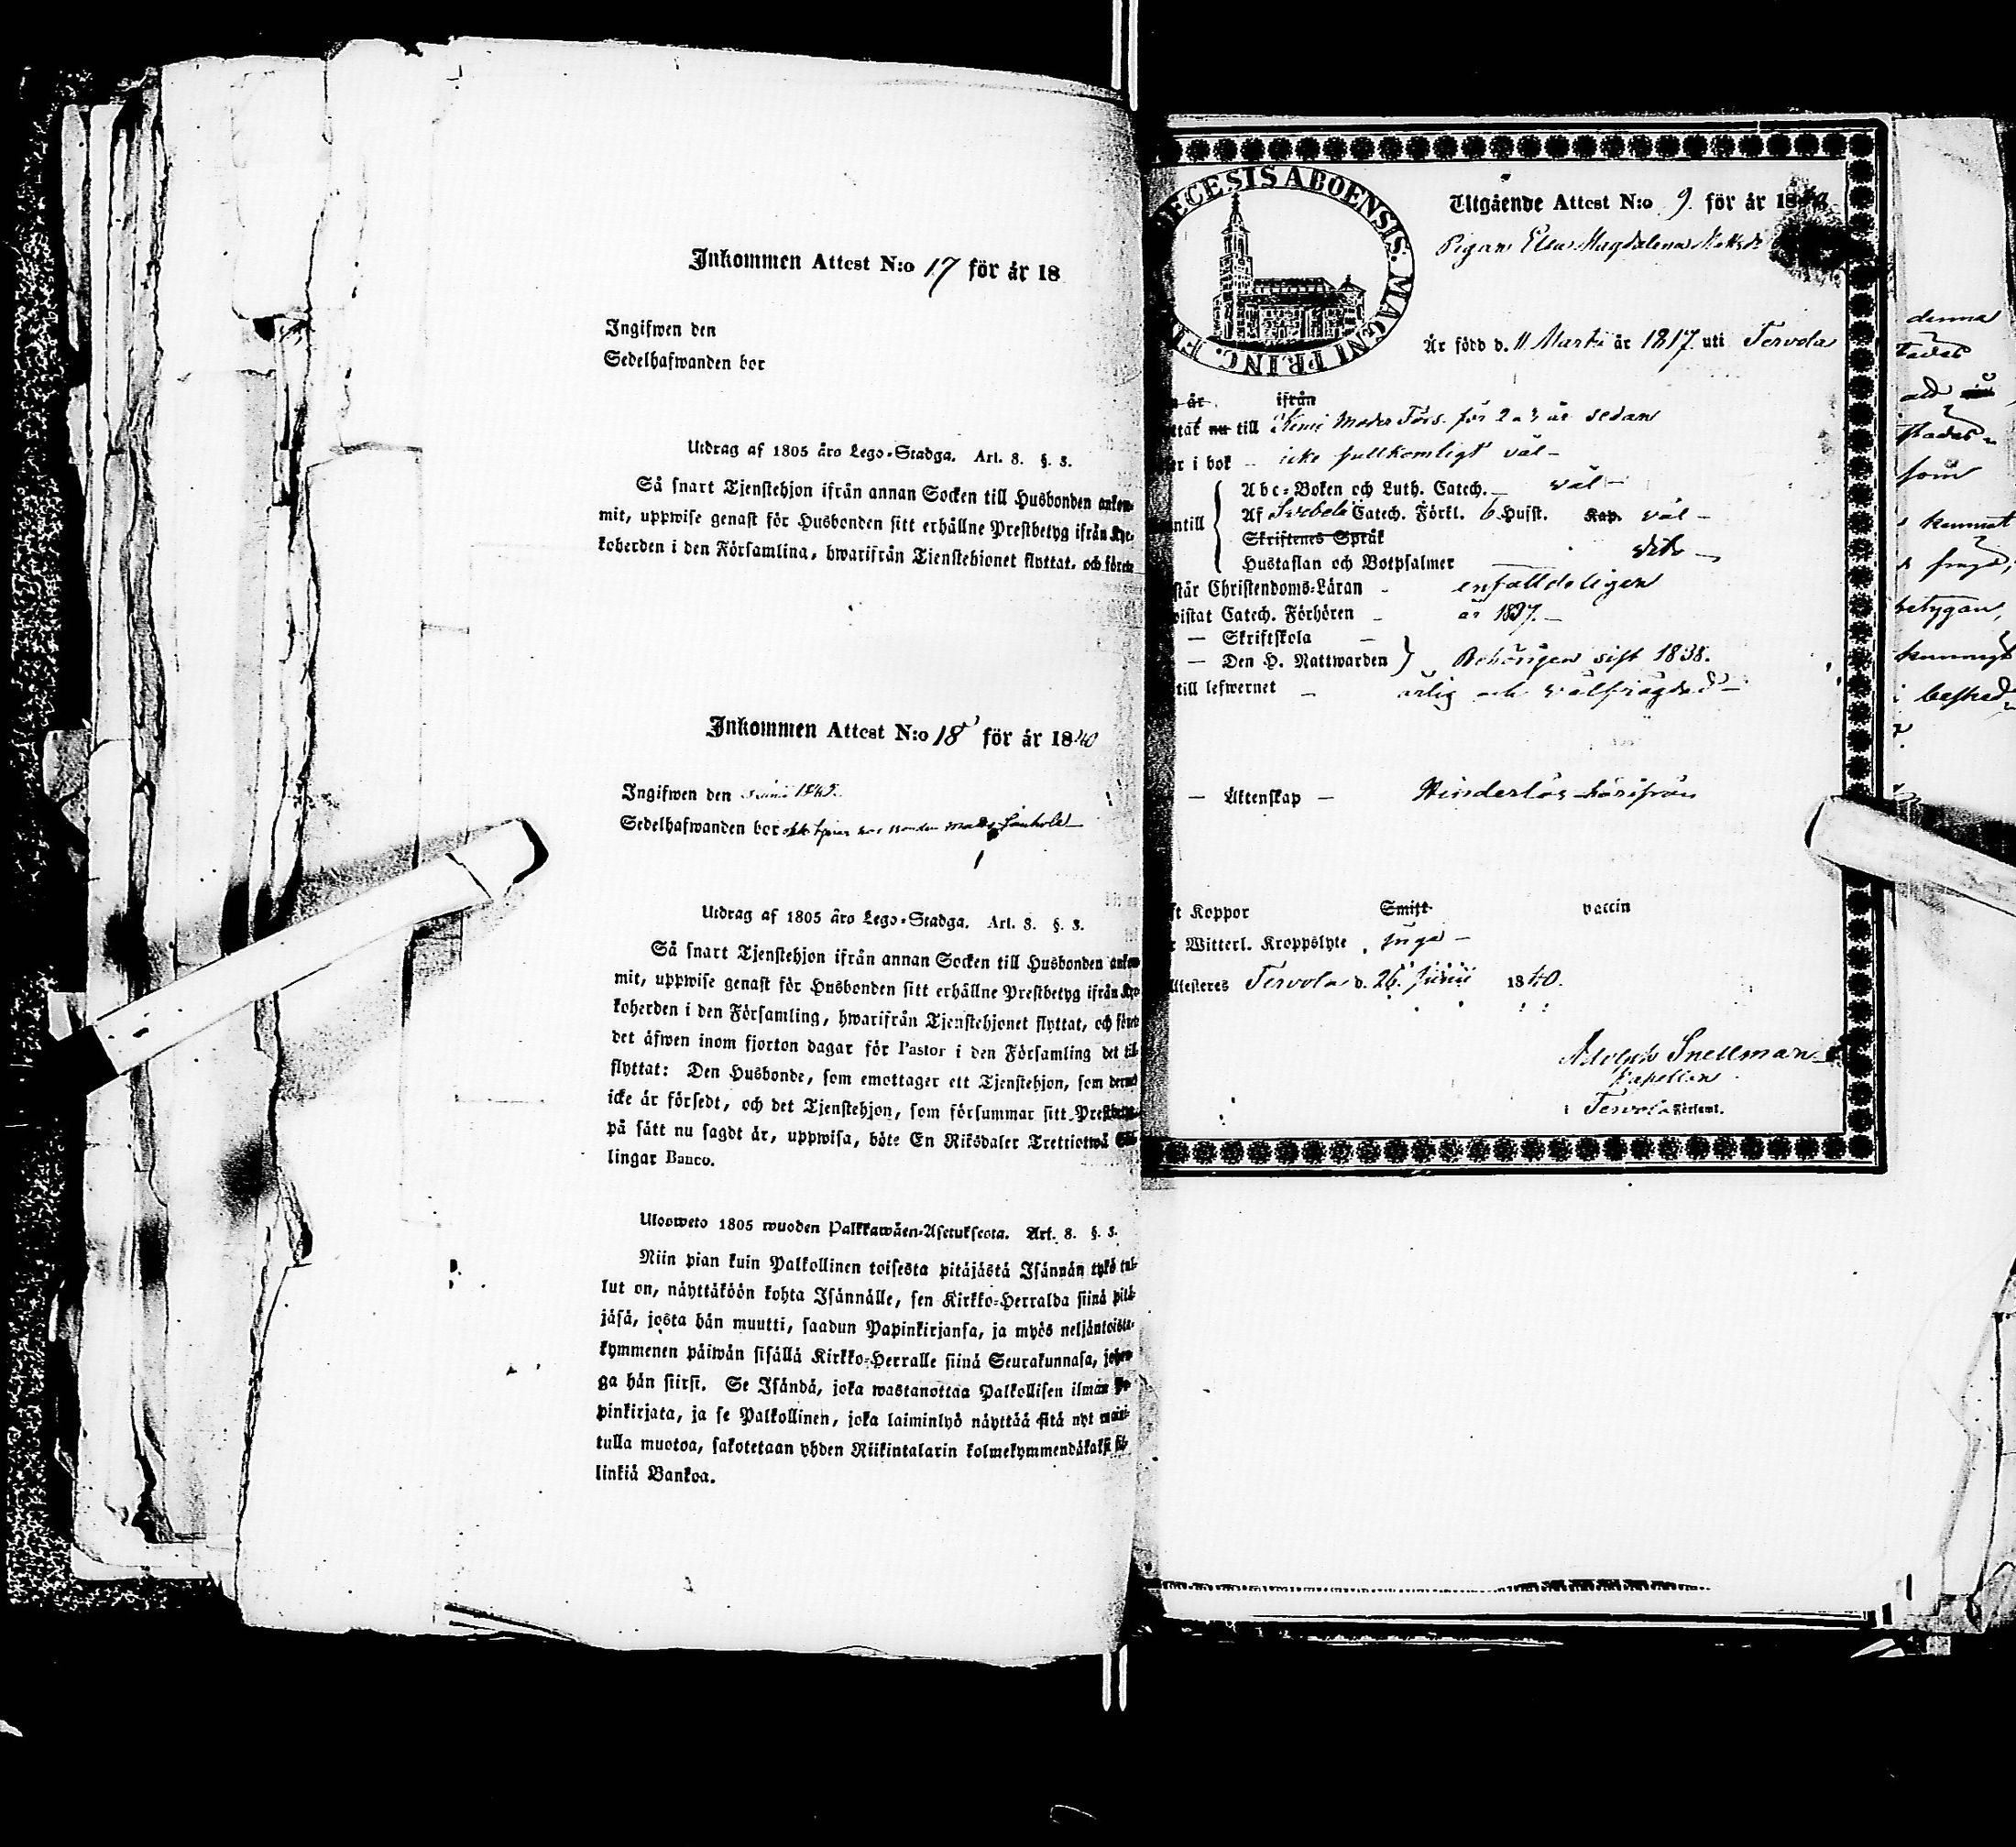 Inkommen Attest N:o 17 för år 18
Ingifwen den
Sedelhafwanden bor
Utdrag af 1805 åro Lego-Stadga. Art. 8. §. 3.
Så snart Tjenstehjon ifrån annan Socken till Husbonden ankom-
mit, uppwise genast för Husbonden sitt erhållne Prestbetyg ifrån Kyr-
koherden i den Församling, hwarifrån Tjenstehjonet flyttat, och förete
Inkommen Attest N:o 18 för år 1840
Ingifwen den
Sedelhafwanden bor
Utdrag af 1805 åro Lego-Stadga. Art. 8. §. 3.
Så snart Tjenstehjon ifrån annan Socken till Husbonden ankom
mit, uppwise genast för Husbonden sitt erhållne Prestbetyg ifrån Kyr
koherden i den Församling, hwarifrån Tjenstehjonet flyttat, och förete
det äfwen inom fjorton dagar för Pastor i den Församling det till
flyttat: Den Husbonde, som emottager ett Tjenstehjon, som dermed
icke är försedt, och det Tjenstehjon, som försummar sitt Prestbetyg
på sätt nu sagdt är, uppwisa, böte En Riksdaler Trettiotwå Skil
lingar Banco.
Ulosweto 1805 wuoden Palkkawäen-Asetuksesta. Art. 8. §. 3.
Niin pian kuin Palkollinen toisesta pitäjästä Isännän tykö tul-
lut on, näyttäköön kohta Isännälle, sen Kirkko-Herralda siinä pitä-
jäsä, josta hän muutti, saadun Papinkirjansa, ja myös neljäntoista-
kymmenen päiwän sisällä Kirkko-Herralle siinä Seurakunnasa, johon
ga hän siirsi. Se Isändä, joka wastanottaa Palkollisen ilman Pa
pinkirjata, ja se Palkollinen, joka laiminlyö näyttää sitä nyt maini-
tulla muotoa, sakotetaan yhden Riikintalarin kolmekymmendäkaksi sil-
linkiä Bankoa.
ECESIS ABOENSIS. MAGNI PRINC. F
Utgående Attest N:o 9. för år 1840
Pigan Elsa Magdalena Mattsdr
Är född d. 11 Martii år 1817 uti Tervola
år ifrån
nu till Kemi Moder Förs. för 2 a 3 år sedan
i bok icke fullkomligt väl
Abc-Boken och Luth. Catech. väl
ntill Af Svebelii Catech. Förkl. 6 Hufst. Kap. väl
Skriftenes Språk
Hustaflan och Botpsalmer dito
står Christendoms-Läran enfalldeligen
wistat Catech. Förhören år 1837.
— Skriftskola
— Den H. Nattwarden Behörigen sist 1838.
till lefwernet ärlig och välfrägdad
— Äktenskap — Hinderlös härifrån
ft Koppor Smitt vaccin
Witterl. Kroppslyte inga
Attesteres Tervola d. 26 Junii 1840.
Adolph Snellman
Kapellan
i Tervola Församl.
denna
som
kunnat
betygar,